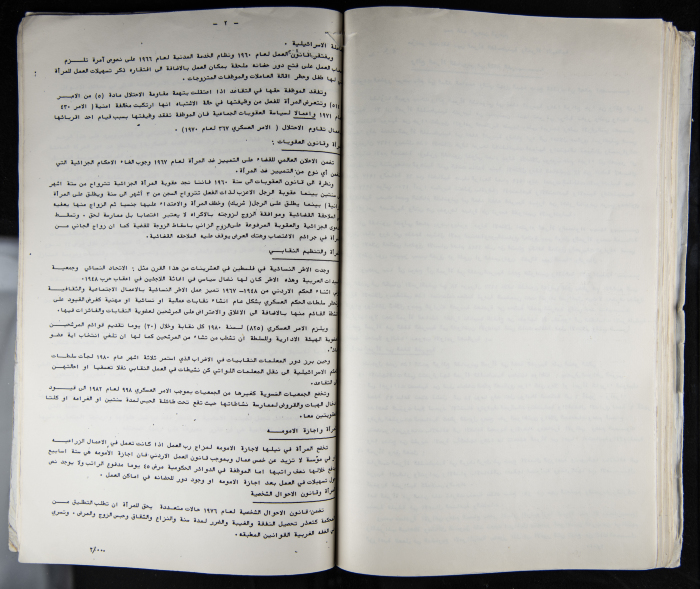 - ٢ -
الاسرائيلية .
ويقتفي قانون العمل لعام ١٩٦٠ ونظام الخدمة المدنية لعام ١٩٦٦ على نصوص آمرة تلـــزم
العمل على فتح دور حضانه ملحقة بمكان العمل بالاضافة الى افتقاره ذكر تسهيلات العمل للمرأة
لها طفل وحظر اقالة العاملات والموظفات المتزوجات .
وتفقد الموظفة حقها في التقاعد اذا اعتقلت بتهمة مقاومة الاحتلال مادة (٥) من الامـــر
وتتعرض المرأة للفصل من وظيفتها في حالة الاشتباه انها ارتكبت مخالفة امنية ( الامر ٤٣٠
١٩٧١ واعمالا لسياسة العقوبات الجماعية فان الموظفة تفقد وظيفتها بسبب قيام احد اقربائها
تقاوم الاحتلال ( الامر العسكري ٣٦٧ لعام ١٩٧٠ )
وقانون العقوبات :
الاعلان العالمي للقضاء على التمييز ضد المرأة لعام ١٩٦٧ وجوب الغاء الاحكام الجزائية التي
أي نوع من التمييز ضد المرأة .
ونظرة الى قانون العقوبات الى سنة ١٩٦٠ فاننا نجد عقوبة المرأة الجزائية تتراوح من سنة اشهر
سنتين بينما عقوبة الرجل الاعزب لذات الفعل تتراوح السجن من ٣ اشهر الى سنة ويطلق على المرأة
بينما يطلق على الرجل ( شريك ) وخطف المرأة والاعتداء عليها جنسيا ثم الزواج منها يعفيه
الملاحقة القضائية ومواقعة الزوج لزوجته بالاكراه لا يعتبر اغتصابا بل ممارسة لحق . وتسقـــط
الجزائية والعقوبة المرفوعة على الزوج الزاني باسقاط الزوجة للقضية كما ان زواج الجاني مـــن
في جرائم الاغتصاب وهتك العرض يوقف عليه الملاحقه القضائية .
والتنظيم النقابـــي
وجدت الاطر النسائية في فلسطين في العشرينات من هذا القرن مثل : الاتحاد النسائي وجمعيـة
العربية وهذه الاطر كان لها نضال سياسي في اغاثة اللاجئين في اعقاب حرب ١٩٤٨ .
اثناء الحكم الاردني من ١٩٤٨ - ١٩٦٧ تميز عمل الاطر النسائية بالاعمال الاجتماعية والثقافيــة
سلطات الحكم العسكري بشكل عام انشاء نقابات عمالية او نسائية او مهنية كفرض القيود على
القائم منها بالاضافة الى الاغلاق والاعتراض على المرشحين لعضوية النقابات والفائزات فيها .
ويلزم الامر العسكري (٨٢٥) لسنة ١٩٨٠ كل نقابة وخلال (٣٠) يوما تقديم قوائم المرشحيـن
الهيئة الادارية وللسلطة ان تشطب من تشاء من المرشحين كما لها ان تلغي انتخاب اية عضو
وحين برز دور المعلمات النقابيات في الاضراب الذي استمر ثلاثة اشهر عام ١٩٨٠ لجأت سلطـات
الاسرائيلية الى نقل المعلمات اللواتي كن نشيطات في العمل النقابي نقلا تعسفيا او احالتهـــن
التقاعد .
وتخضع الجمعيات النسوية كغيرها من الجمعيات بموجب الامر العسكري ٩٩٨ لعام ١٩٨٢ الى قيـــود
الهبات والقروض لممارسة نشاطاتها حيث تقع تحت طائلة الحبس لمدة سنتين او الغرامه او كلتا
معا .
واجازة الامومـــه
تخضع المرأة في نيلها لاجازة الامومه لمزاج رب العمل اذا كانت تعمل في الاعمال الزراعيــه
في مؤسسة لا تزيد عن خمس عمال وبموجب قانون العمل الاردني فان اجازة الأمومه هي ستة اسابيع
خلالها نصف راتبها اما الموظفة في الدوائر الحكومية مرض ٤٥ يوما مدفوع الراتب ولا يوجد نص
تسهيلات في العمل بعد اجازة الامومه او وجود دور للحضانه في اماكن العمل .
وقانون الاحوال الشخصية
قانون الاحوال الشخصية لعام ١٩٧٦ حالات متعـــددة يحق للمرأة ان تطلب التطليق مـــن
كتعذر تحصيل النفقة والغيبة والضرر لمدة سنة والنزاع والشقاق وحبس الزوج والمرض . وتسري
الضفه الغربية القوانين المطبقه .
٣/٠٠٠